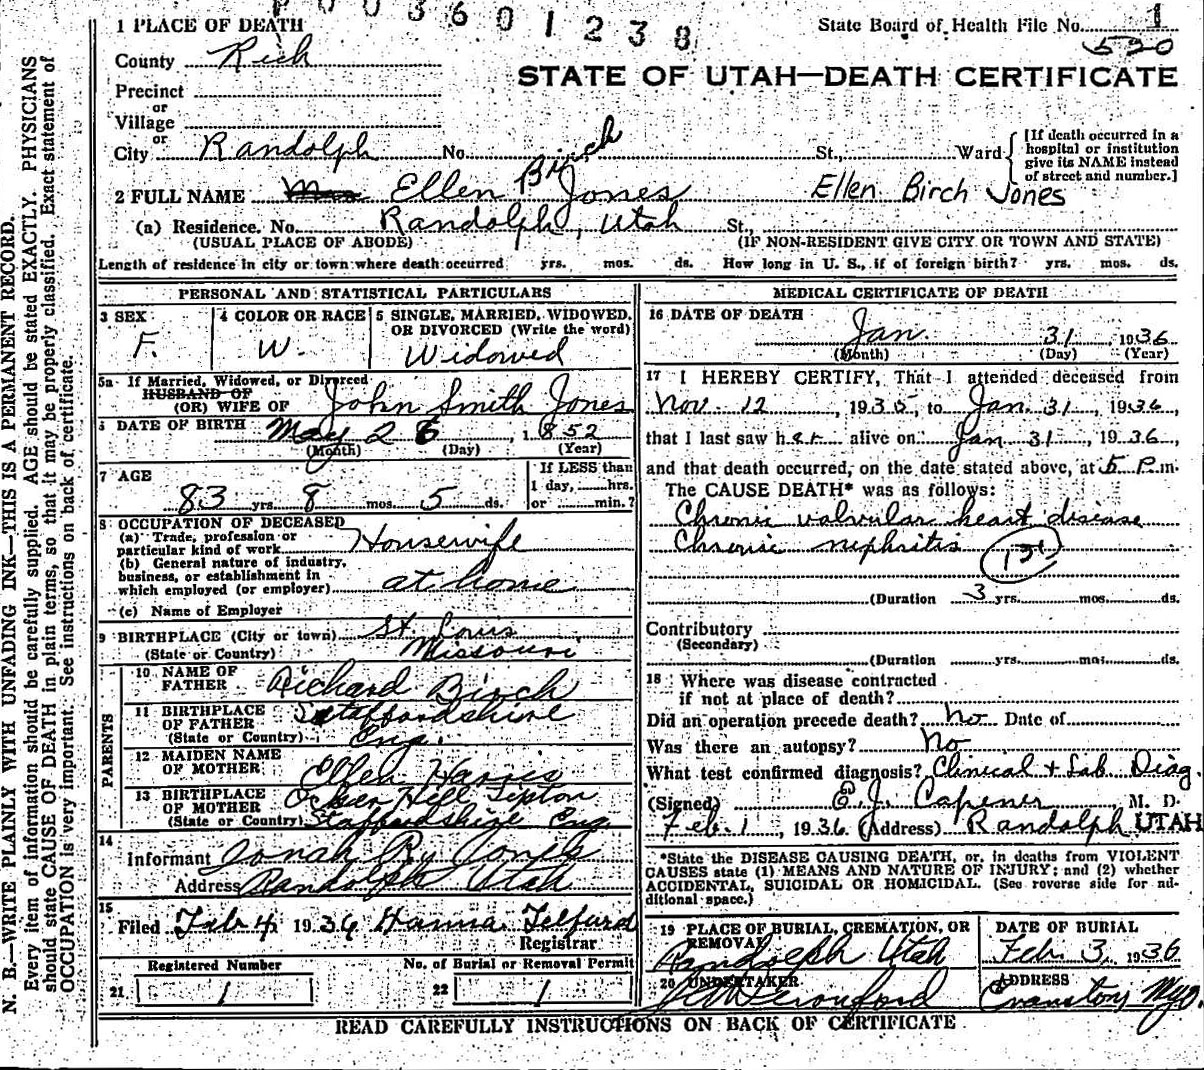 P 0 0 3 6 0 1 2 3 8
1 PLACE OF DEATH
State Board of Health File No. 1
County Rich
520
STATE OF UTAH—DEATH CERTIFICATE
Precinct
or
Village
or
City Randolph No. St., Ward
[If death occurred in a
hospital or institution
give its NAME instead
of street and number.]
2 FULL NAME Mrs Ellen Birch Jones
Ellen Birch Jones
(a) Residence. No. Randolph, Utah St.,
(USUAL PLACE OF ABODE) (IF NON-RESIDENT GIVE CITY OR TOWN AND STATE)
Length of residence in city or town where death occurred yrs. mos. ds. How long in U. S., if of foreign birth? yrs. mos. ds.
PERSONAL AND STATISTICAL PARTICULARS
3 SEX
F.
4 COLOR OR RACE
W.
5 SINGLE, MARRIED, WIDOWED, OR DIVORCED (Write the word)
Widowed
5a If Married, Widowed, or Divorced
HUSBAND OF
(OR) WIFE OF John Smith Jones
6 DATE OF BIRTH May 26, 1852
(Month) (Day) (Year)
7 AGE
83 yrs. 8 mos. 5 ds.
If LESS than
1 day, hrs.
or min.?
8 OCCUPATION OF DECEASED
(a) Trade, profession or
particular kind of work Housewife
(b) General nature of industry,
business, or establishment in
which employed (or employer) at home
(c) Name of Employer
9 BIRTHPLACE (City or town) St. Louis
(State or Country) Missouri
PARENTS
10 NAME OF
FATHER Richard Birch
11 BIRTHPLACE
OF FATHER Staffordshire
(State or Country) Eng.
12 MAIDEN NAME
OF MOTHER Ellen Harris
13 BIRTHPLACE
OF MOTHER Ocker Hill Tipton
(State or Country) Staffordshire Eng.
14
Informant Jonah R. Jones
Address Randolph Utah
15
Filed Feb 4, 1936 Hanna Telford
Registrar
Registered Number
21 1
No. of Burial or Removal Permit
22 1
MEDICAL CERTIFICATE OF DEATH
16 DATE OF DEATH
Jan. 31 1936
(Month) (Day) (Year)
17 I HEREBY CERTIFY, That I attended deceased from
Nov. 12, 1935, to Jan. 31, 1936,
that I last saw her alive on Jan 31, 1936,
and that death occurred, on the date stated above, at 5 P.m.
The CAUSE DEATH* was as follows:
Chronic valvular heart disease
Chronic nephritis 131
(Duration 3 yrs. mos. ds.
Contributory
(Secondary)
(Duration yrs. mos. ds.
18 Where was disease contracted
if not at place of death?
Did an operation precede death? No Date of
Was there an autopsy? No
What test confirmed diagnosis? Clinical & Lab Diag.
(Signed) E. J. Capener M. D.
Feb. 1, 1936 (Address) Randolph UTAH
*State the DISEASE CAUSING DEATH, or, in deaths from VIOLENT
CAUSES state (1) MEANS AND NATURE OF INJURY; and (2) whether
ACCIDENTAL, SUICIDAL OR HOMICIDAL. (See reverse side for additional space.)
19 PLACE OF BURIAL, CREMATION, OR
REMOVAL
Randolph Utah
DATE OF BURIAL
Feb. 3, 1936
20 UNDERTAKER
Crouford
ADDRESS
Evanston Wyo.
READ CAREFULLY INSTRUCTIONS ON BACK OF CERTIFICATE
N. B.—WRITE PLAINLY WITH UNFADING INK—THIS IS A PERMANENT RECORD.
Every item of information should be carefully supplied. AGE should be stated EXACTLY. PHYSICIANS
should state CAUSE OF DEATH in plain terms, so that it may be properly classified. Exact statement of
OCCUPATION is very important. See instructions on back of certificate.